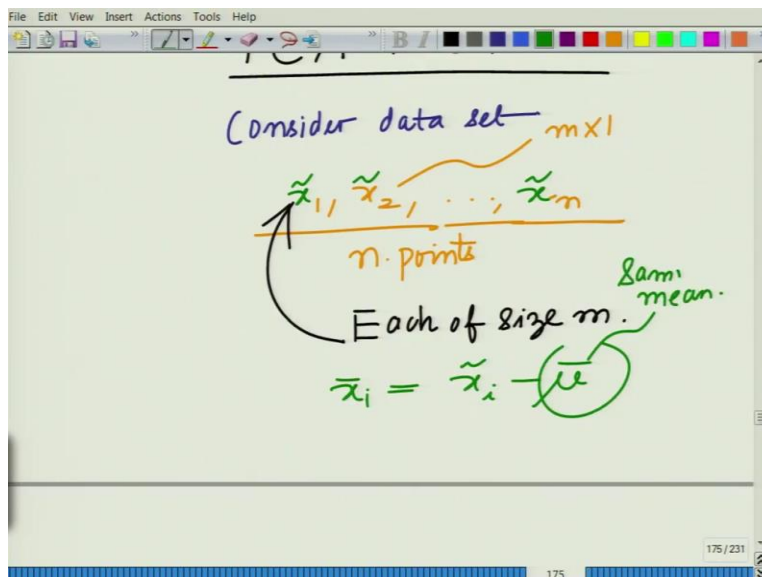 File Edit View Insert Actions Tools Help
B I
Consider data set m×1
x̃₁, x̃₂, . . ., x̃n
n. points
Sam.
mean.
Each of size m.
x̄ᵢ = x̃ᵢ - ū
175 / 231
175